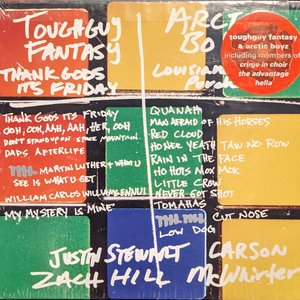 TOUGHGUY
FANTASY
THANK GODS
ITS FRIDAY
ARCT
BO
LOUISIANA
toughguy fantasy
& arctic boyz
including members of
crime in choir
the advantage
hella
THANK GODS ITS FRIDAY
OOH, OOH, AAH, AAH, HER, OOH
DON'T STAND UP ON SPACE MOUNTAIN.
DADS AFTERLIFE
MARTIN LUTHER + WHAT U
SEE IS WHAT U GET
WILLIAM CARLOS WILLIAMS ENNUI
MY MYSTERY IS MINE
QUANAH
MAN AFRAID OF HIS HORSES
RED CLOUD
HO NEE YEATH TAW NO ROW
RAIN IN THE FACE
HO HOTS NOX MOK
LITTLE CROW
NEVER GOT SHOT
TOMAHAS
CUT NOSE
LOW DOG
JUSTIN STEWART
ZACH HILL
CARSON
McWHIRTER